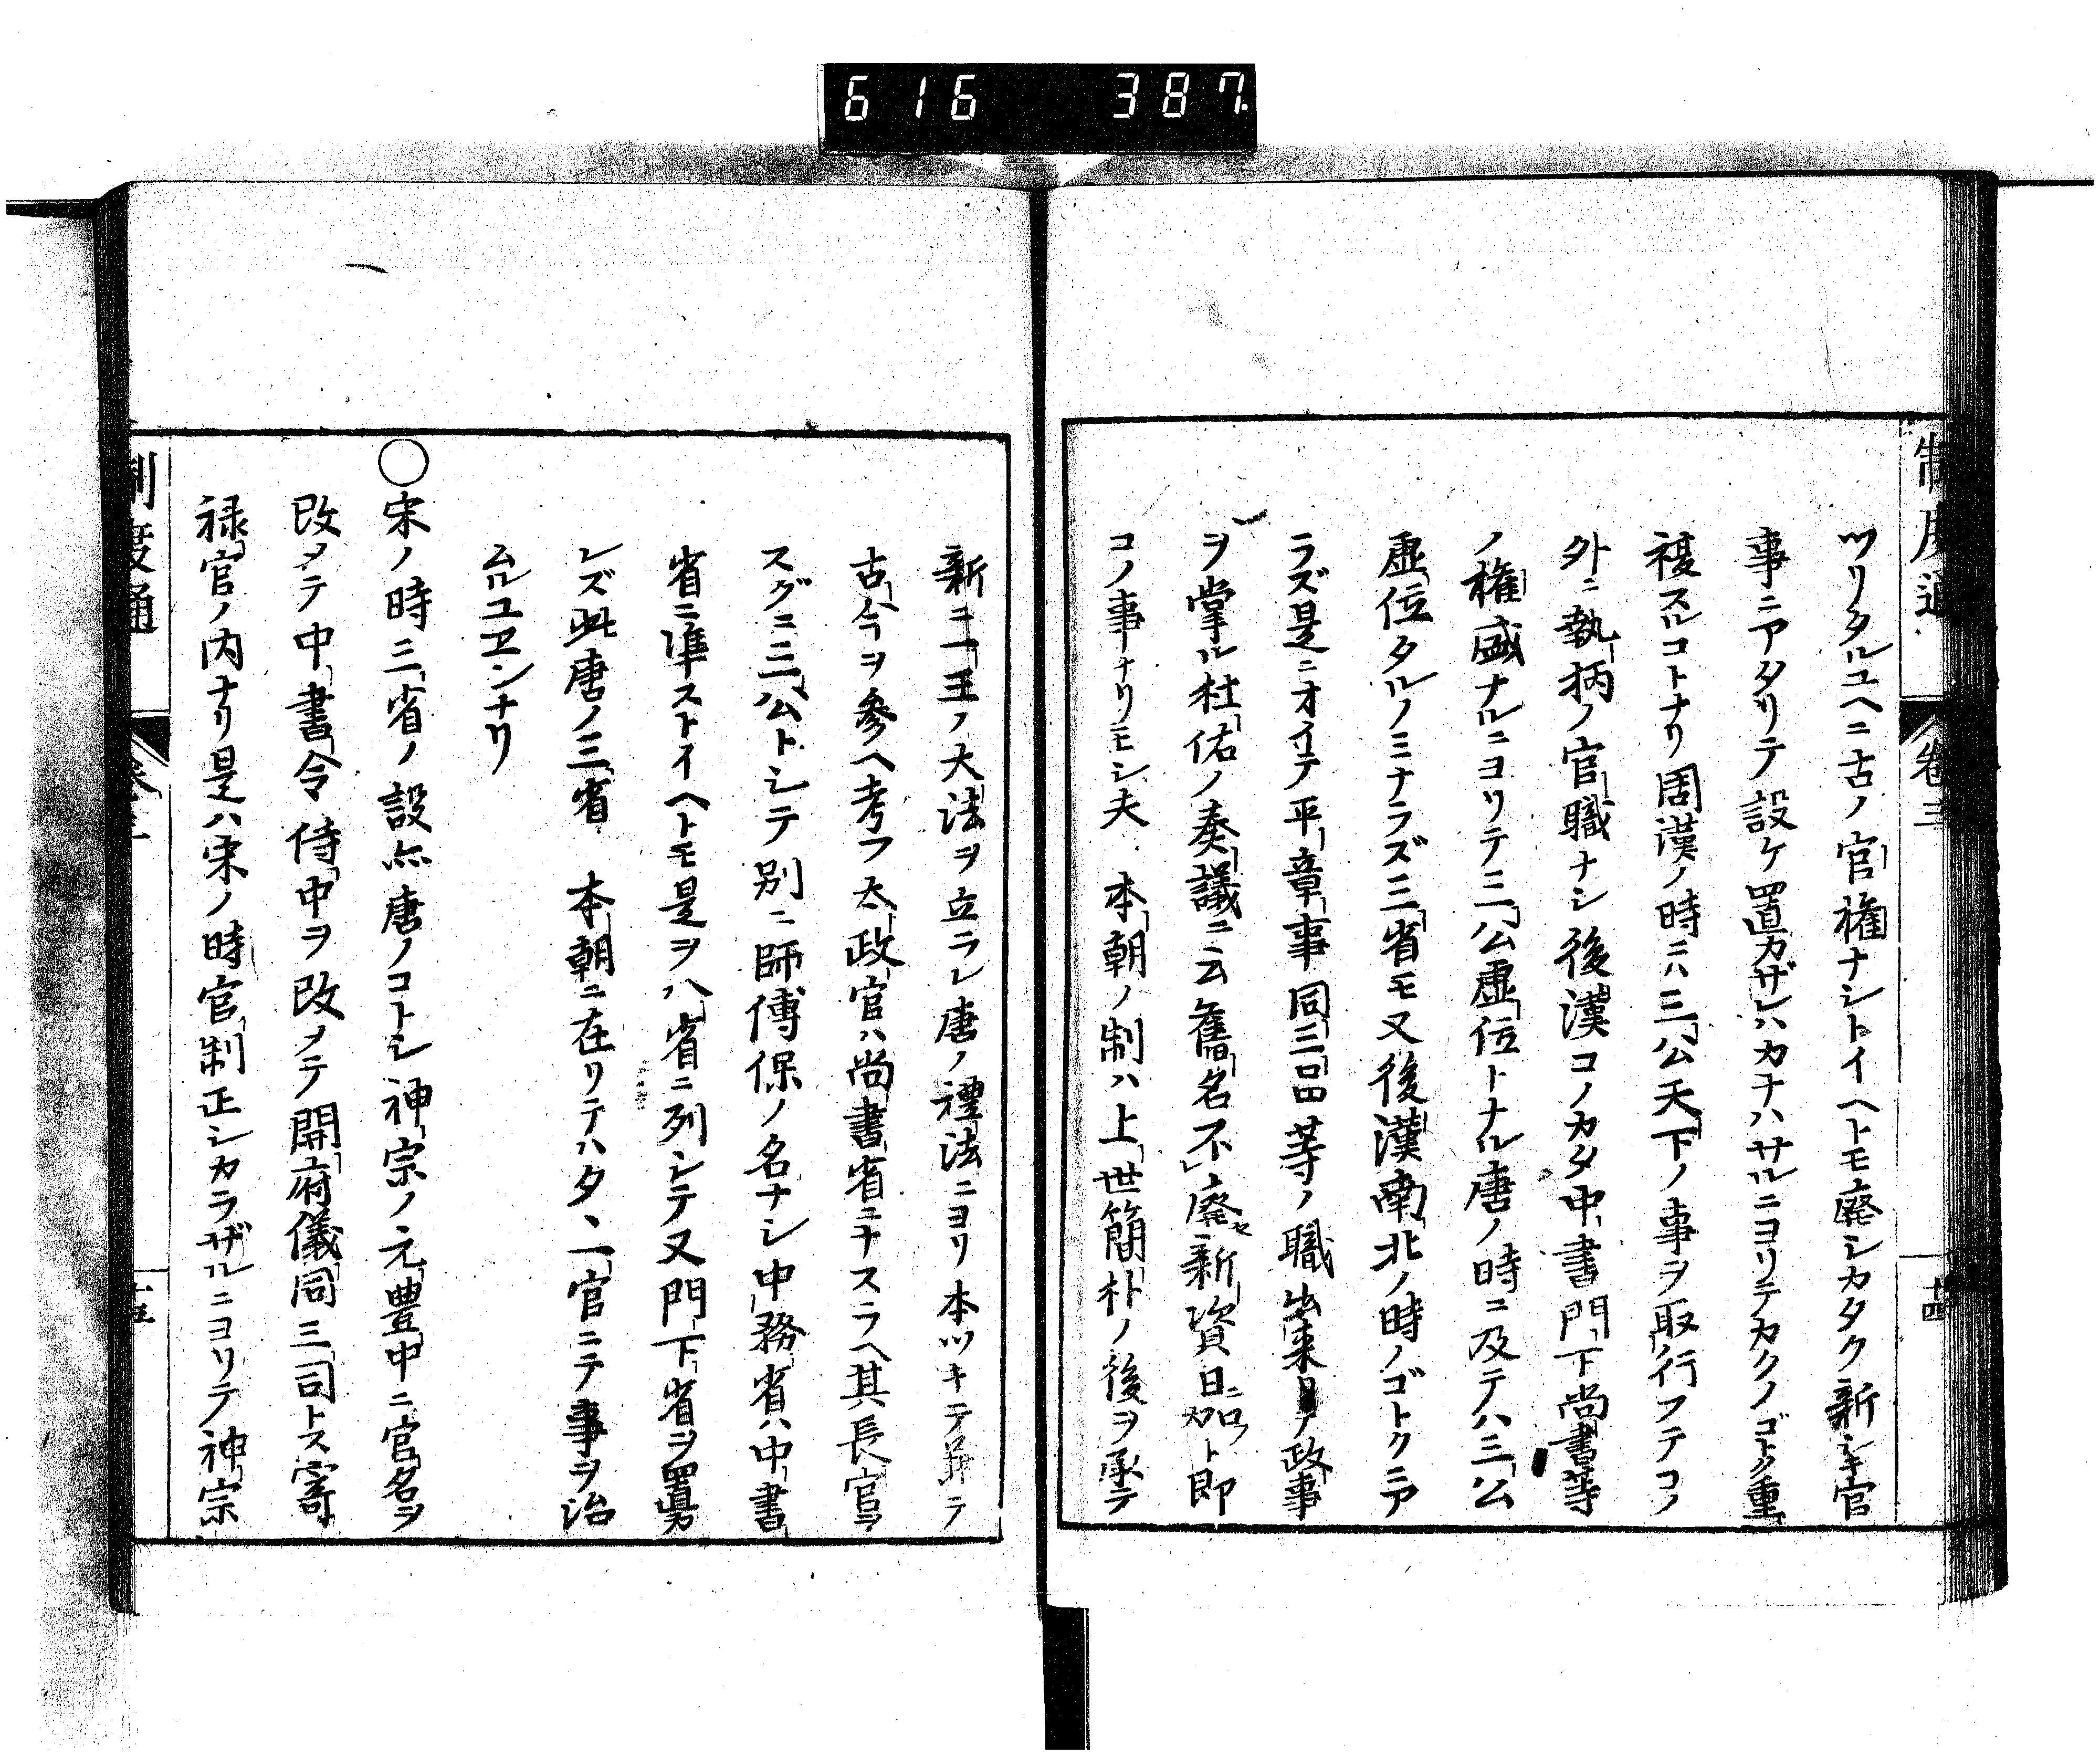 616 387
制度通 卷三 十四
ツリタルユヘニ古ノ官權ナシトイヘトモ廢シカタク新シキ官
事ニアタリテ設ケ置カザレハカナハサルニヨリテカクノゴトク重
複スルコトナリ周漢ノ時ニハ三公天下ノ事ヲ取行フテコノ
外ニ執柄ノ官職ナシ後漢コノカタ中書門下尚書等
ノ權盛ナルニヨリテ三公虚位トナル唐ノ時ニ及テハ三公
虚位タルノミナラズ三省モ又後漢南北ノ時ノゴトクニア
ラズ是ニオイテ平章事同三品等ノ職出来テ政事
ヲ掌ル杜佑ノ奏議ニ云舊名不廢セ新資日ニ加フト即
コノ事ナリモシ夫 本朝ノ制ハ上世簡朴ノ後ヲ承テ
新ニ一王ノ大法ヲ立ラレ唐ノ禮法ニヨリ本ツキテ并テ
古今ヲ參ヘ考フ太政官ハ尚書省ニナスラヘ其長官ヲ
スグニ三公トシテ別ニ師傅保ノ名ナシ中務省ハ中書
省ニ準ストイヘトモ是ヲ八省ニ列シテ又門下省ヲ置カ
レズ此唐ノ三省 本朝ニ在リテハタヽ一官ニテ事ヲ治
ムルユヱンナリ
〇宋ノ時三省ノ設亦唐ノコトシ神宗ノ元豊中ニ官名ヲ
改メテ中書令侍中ヲ改メテ開府儀同三司トス寄
禄官ノ内ナリ是ハ宋ノ時官制正シカラザルニヨリテ神宗
制度通 十五